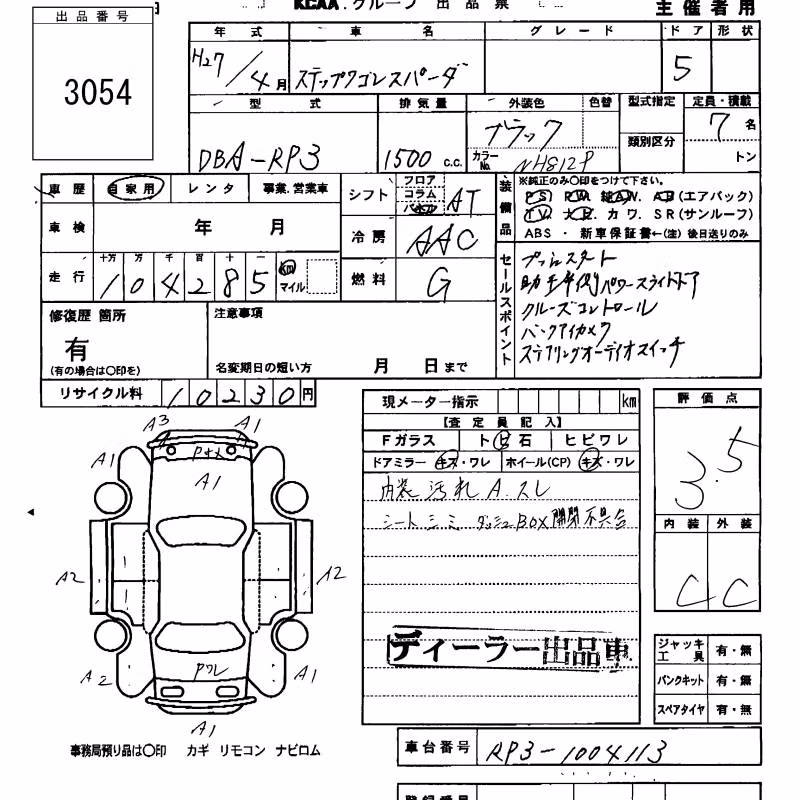 KCAA.グループ 出品票
主催者用
出品番号
3054
年式 車名 グレード ドア 形状
H27/4月 ステップワゴンスパーダ 5
型式 排気量 外装色 色替 型式指定 定員・積載
類別区分
DBA-RP3 1500 c.c. ブラック 7名
カラーNo. NH812P トン
車歴 自家用 レンタ 事業.営業車
シフト フロア コラム AT
車検 年 月
冷房 AAC
走行 十万 万 千 百 十 一
104285 km マイル
燃料 G
装備品 ※純正のみ○印をつけて下さい。
PS. PW. AW. AB(エアバック)
TV. カワ. SR(サンルーフ)
ABS ・ 新車保証書←(注)後日送りのみ
セールスポイント
プッシュスタート
助手席側パワースライドドア
クルーズコントロール
バックアイカメラ
ステアリングオーディオスイッチ
修復歴 箇所
有
(有の場合は○印を)
注意事項
名変期日の短い方 月 日まで
リサイクル料 10230円
現メーター指示 km
【査定員記入】
Fガラス トビ石 ヒビワレ
ドアミラー キズ・ワレ ホイール(CP) キズ・ワレ
内装 汚れ A.スレ
シート シミ ダッシュBOX開閉不具合
ディーラー出品車
評価点
3.5
内装 外装
C C
ジャッキ工具 有・無
パンクキット 有・無
スペアタイヤ 有・無
A3 A1
A1 A1
A1
A2 A2
A2 PワレA1
A1
事務局預り品は○印 カギ リモコン ナビロム
車台番号 RP3-1004113
登録番号